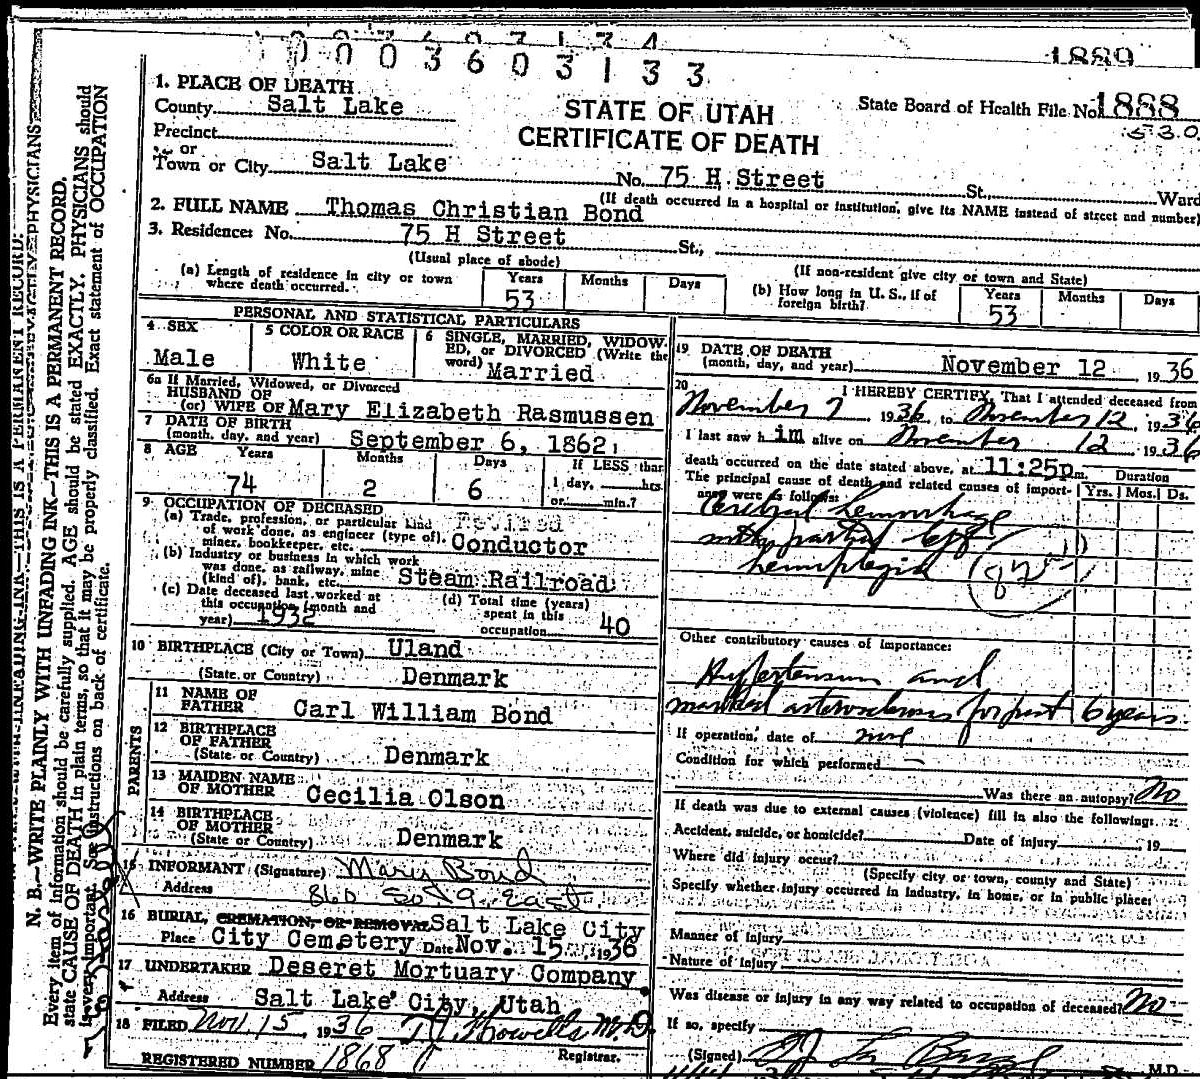 0003603133
1889
1. PLACE OF DEATH
County Salt Lake
STATE OF UTAH
CERTIFICATE OF DEATH
State Board of Health File No. 1888
Precinct
or
Town or City Salt Lake No. 75 H Street St., Ward
(If death occurred in a hospital or institution, give its NAME instead of street and number)
2. FULL NAME Thomas Christian Bond
3. Residence: No. 75 H Street St.,
(Usual place of abode)
(If non-resident give city or town and State)
(a) Length of residence in city or town where death occurred. Years 53 Months Days
(b) How long in U. S., if of foreign birth? Years 53 Months Days
PERSONAL AND STATISTICAL PARTICULARS
4 SEX Male
5 COLOR OR RACE White
6 SINGLE, MARRIED, WIDOWED, or DIVORCED (Write the word) Married
6a If Married, Widowed, or Divorced
HUSBAND OF
(or) WIFE OF Mary Elizabeth Rasmussen
7 DATE OF BIRTH
(month, day, and year) September 6, 1862
8 AGE Years 74 Months 2 Days 6 If LESS than 1 day, hrs. or min.?
9 OCCUPATION OF DECEASED
(a) Trade, profession, or particular kind of work done, as engineer (type of), miner, bookkeeper, etc. Retired Conductor
(b) Industry or business in which work was done, as railway, mine (kind of), bank, etc. Steam Railroad
(c) Date deceased last worked at this occupation (month and year) 1932
(d) Total time (years) spent in this occupation 40
10 BIRTHPLACE (City or Town) Uland
(State or Country) Denmark
PARENTS
11 NAME OF FATHER Carl William Bond
12 BIRTHPLACE OF FATHER
(State or Country) Denmark
13 MAIDEN NAME OF MOTHER Cecilia Olson
14 BIRTHPLACE OF MOTHER
(State or Country) Denmark
15 INFORMANT (Signature) Mary Bond
Address 860 So 9 East
16 BURIAL, CREMATION, OR REMOVAL Salt Lake City
Place City Cemetery Date Nov. 15 1936
17 UNDERTAKER Deseret Mortuary Company
Address Salt Lake City, Utah
18 FILED Nov 15 1936 Howells M.D.
Registrar.
REGISTERED NUMBER 1868
19 DATE OF DEATH
(month, day, and year) November 12, 1936
20 I HEREBY CERTIFY, That I attended deceased from
November 7 1936, to November 12, 1936
I last saw him alive on November 12 1936
death occurred on the date stated above, at 11:25p m.
The principal cause of death and related causes of importance were as follows: Duration Yrs. Mos. Ds.
Cerebral hemorrhage
with partial left
hemiplegia
Other contributory causes of importance:
Hypertension and
marked arteriosclerosis for past 6 years
If operation, date of none
Condition for which performed
Was there an autopsy? No
If death was due to external causes (violence) fill in also the following:
Accident, suicide, or homicide? Date of injury 19
Where did injury occur?
(Specify city or town, county and State)
Specify whether injury occurred in industry, in home, or in public place:
Manner of injury
Nature of injury
Was disease or injury in any way related to occupation of deceased? No
If so, specify
(Signed) M.D.
N. B.—WRITE PLAINLY WITH UNFADING INK—THIS IS A PERMANENT RECORD.
Every item of information should be carefully supplied. AGE should be stated EXACTLY. PHYSICIANS should
state CAUSE OF DEATH in plain terms, so that it may be properly classified. Exact statement of OCCUPATION
is very important. See instructions on back of certificate.